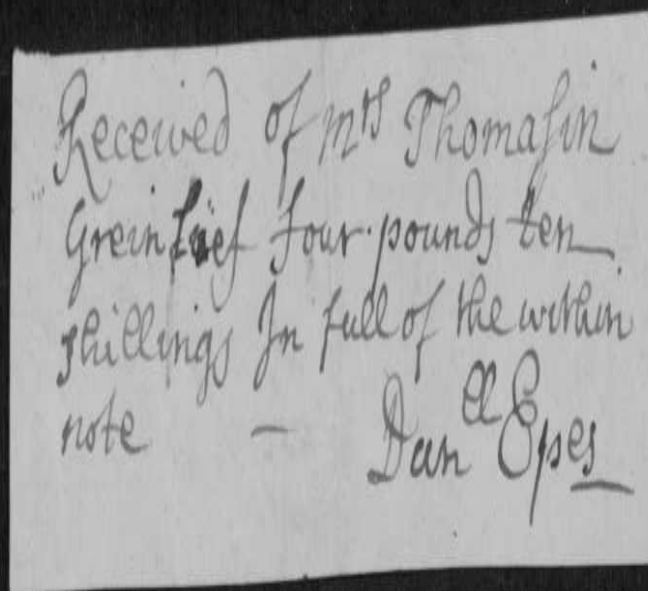 Received of mrs Thomasin
Greinlief four pounds ten
shillings In full of the within
note — Danll Epes